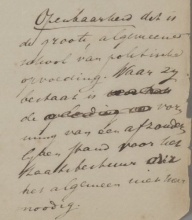 Openbaarheid dit is
de groote, algemeene
school van politische
opvoeding. Waar zy
bestaat is
de vor-
ming van een afzonder-
lyken stand voor het
Staatsbestuur
het algemeen niet meer
noodig.